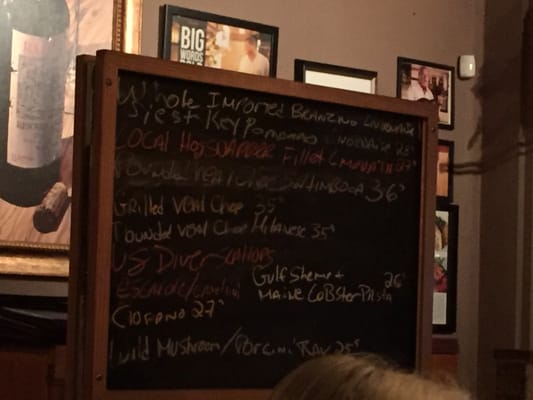 BIG
WORDS
Whole Imported Branzino Livornaise
Siest Key Pompano 28
LOCAL Hogsnapper Fillet 27
Pounded Veal Chop Saltimboca 36
Grilled Veal Chop 35
Pounded Veal Chop Milanese 35
US Diver Scallops
Escarole/
Gulf Shrimp + 26
Maine Lobster Pasta
Ciopano 27
Wild Mushroom/Porcini Rav 25